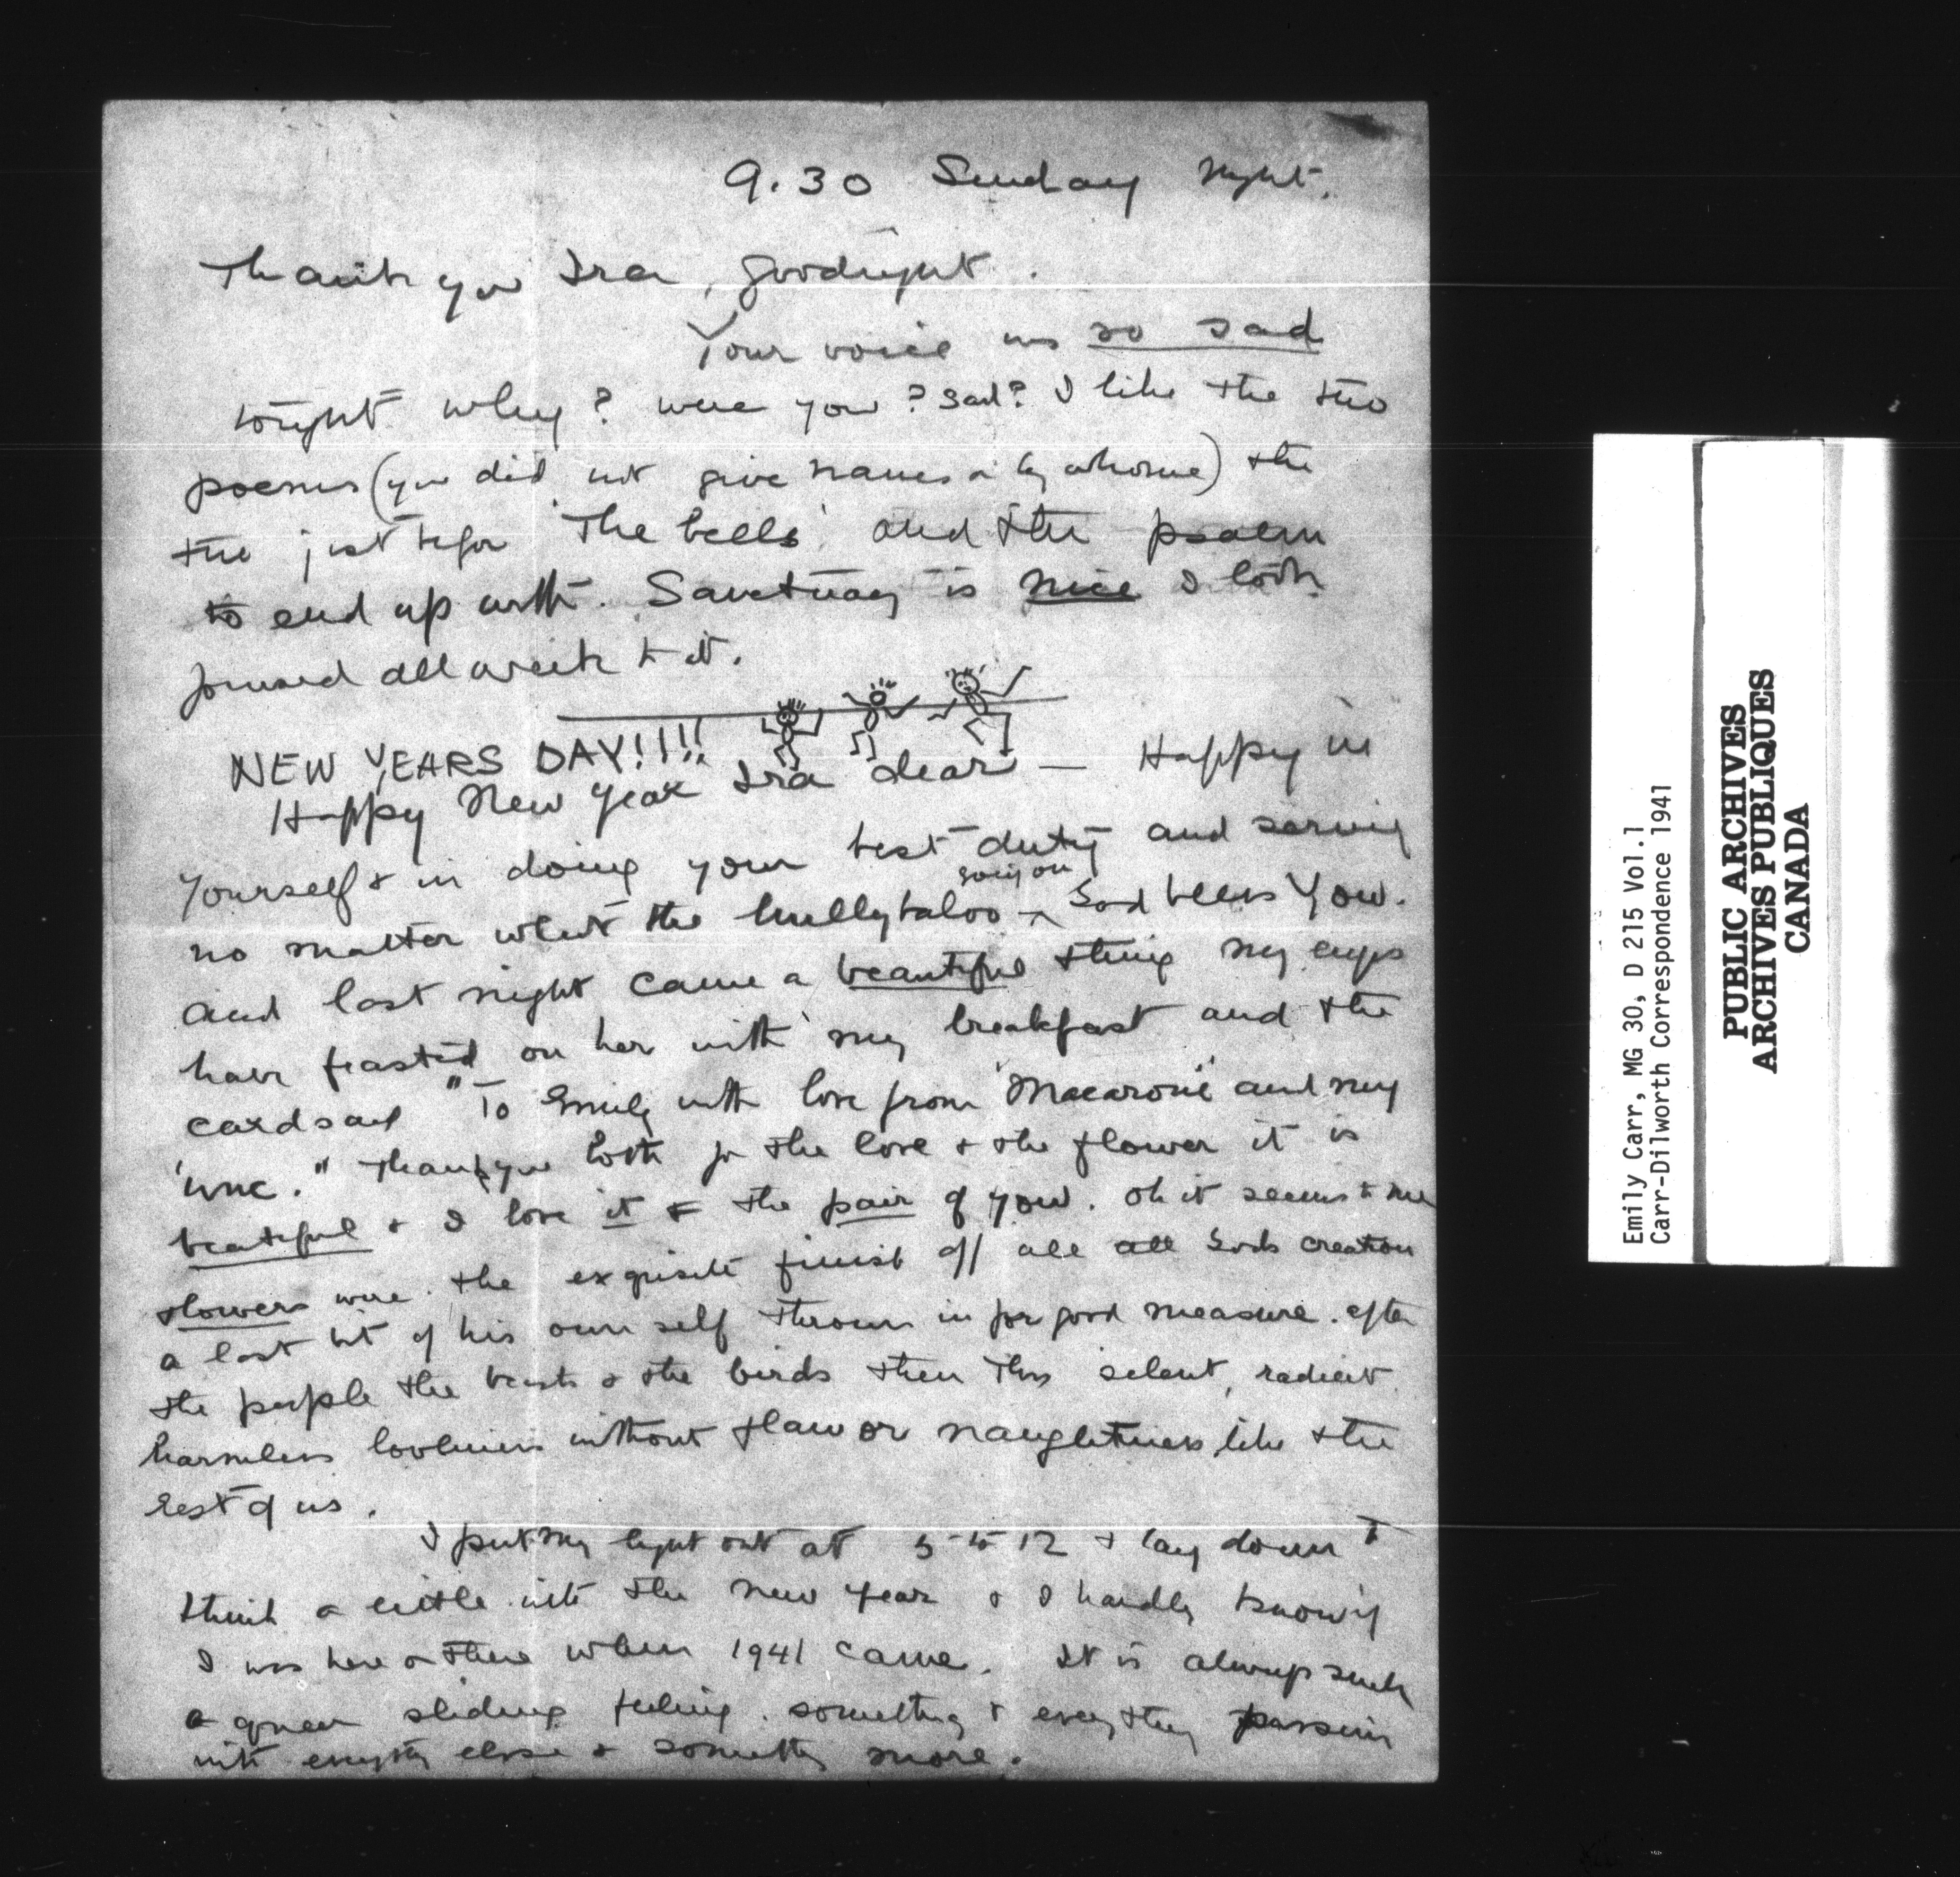 9.30 Sunday night.
Thank you Ira, goodnight.
Your voice was so sad
tonight why? were you? sad? I like the two
poems (you did not give names or by whome) the
two just befor 'The bells' and the psalm
to end up with. Sanctuary is nice I look
forward all week to it.
NEW YEARS DAY!!!!
Happy New Year Ira dear — Happy in
yourself & in doing your best duty and serving
going on
no matter what the hullybaloo ^ God bless You.
and last night came a beautiful thing my eyes
have feasted on her with my breakfast and the
card says "To Emily with love from 'Macaroni' and my
'unc." Thank you both for the love & the flower it is
beautiful & I love it & the pair of you. Oh it seems to me
flowers were the exquisite finish off all all Gods creation
a last bit of his own self thrown in for good measure. after
the people the beasts & the birds then this silent, radient
harmless lovliness without flaw or naughtiness like the
rest of us.
I put my light out at 5 to 12 & lay down to
think a little into the new year & I hardly know if
I was here or there when 1941 came. It is always such
a queer sliding feeling. something & everything passing
into everything else & something more.
Emily Carr, MG 30, D 215 Vol.1
Carr-Dilworth Correspondence 1941
PUBLIC ARCHIVES
ARCHIVES PUBLIQUES
CANADA